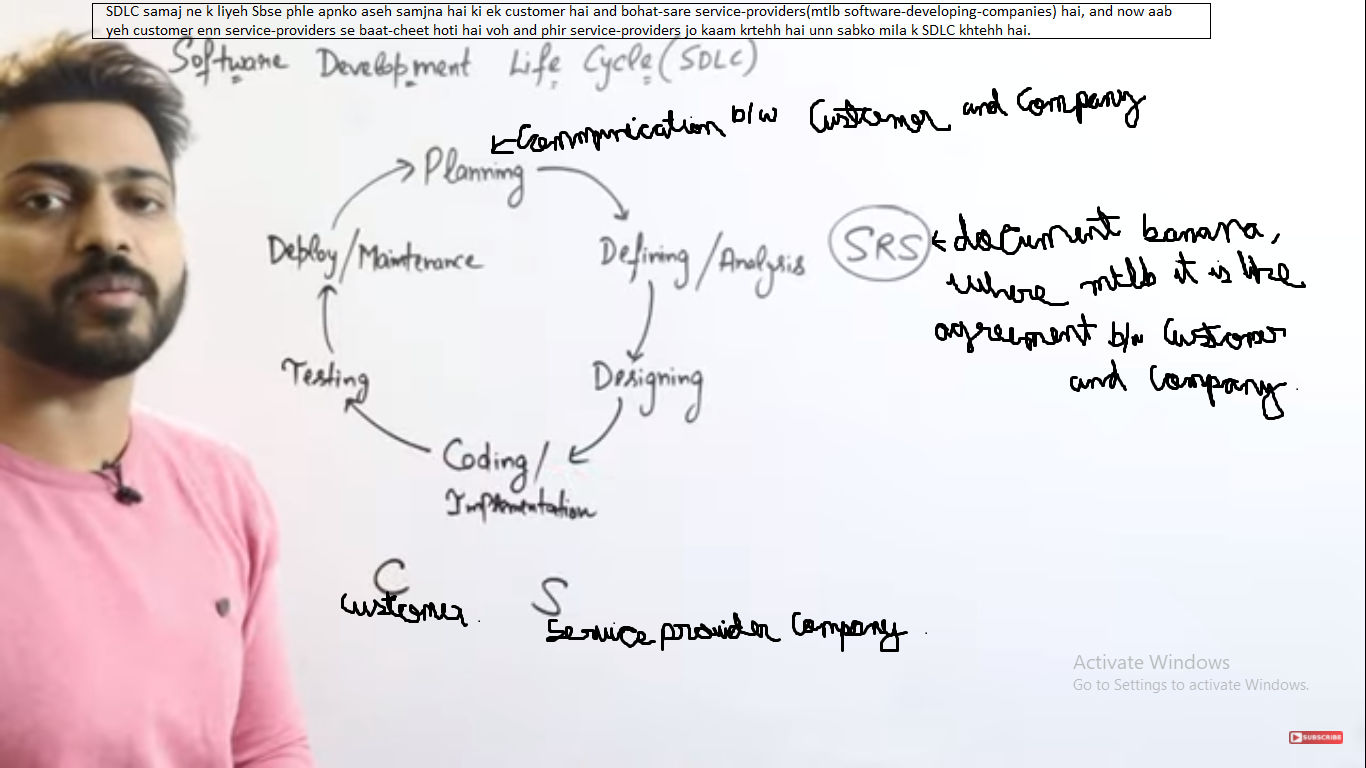 SDLC samaj ne k liyeh Sbse phle apnko aseh samjna hai ki ek customer hai and bohat-sare service-providers(mtlb software-developing-companies) hai, and now aab
yeh customer enn service-providers se baat-cheet hoti hai voh and phir service-providers jo kaam krtehh hai unn sabko mila k SDLC khtehh hai.
Software Development Life Cycle (SDLC)
Communication b/w Customer and Company
Planning
Deploy/Maintenance
Defining/Analysis
SRS
document banana,
where mtlb it is like
agreement b/w Customer
and Company.
Testing
Designing
Coding/
Implementation
C
Customer.
S
Service provider Company.
Activate Windows
Go to Settings to activate Windows.
SUBSCRIBE